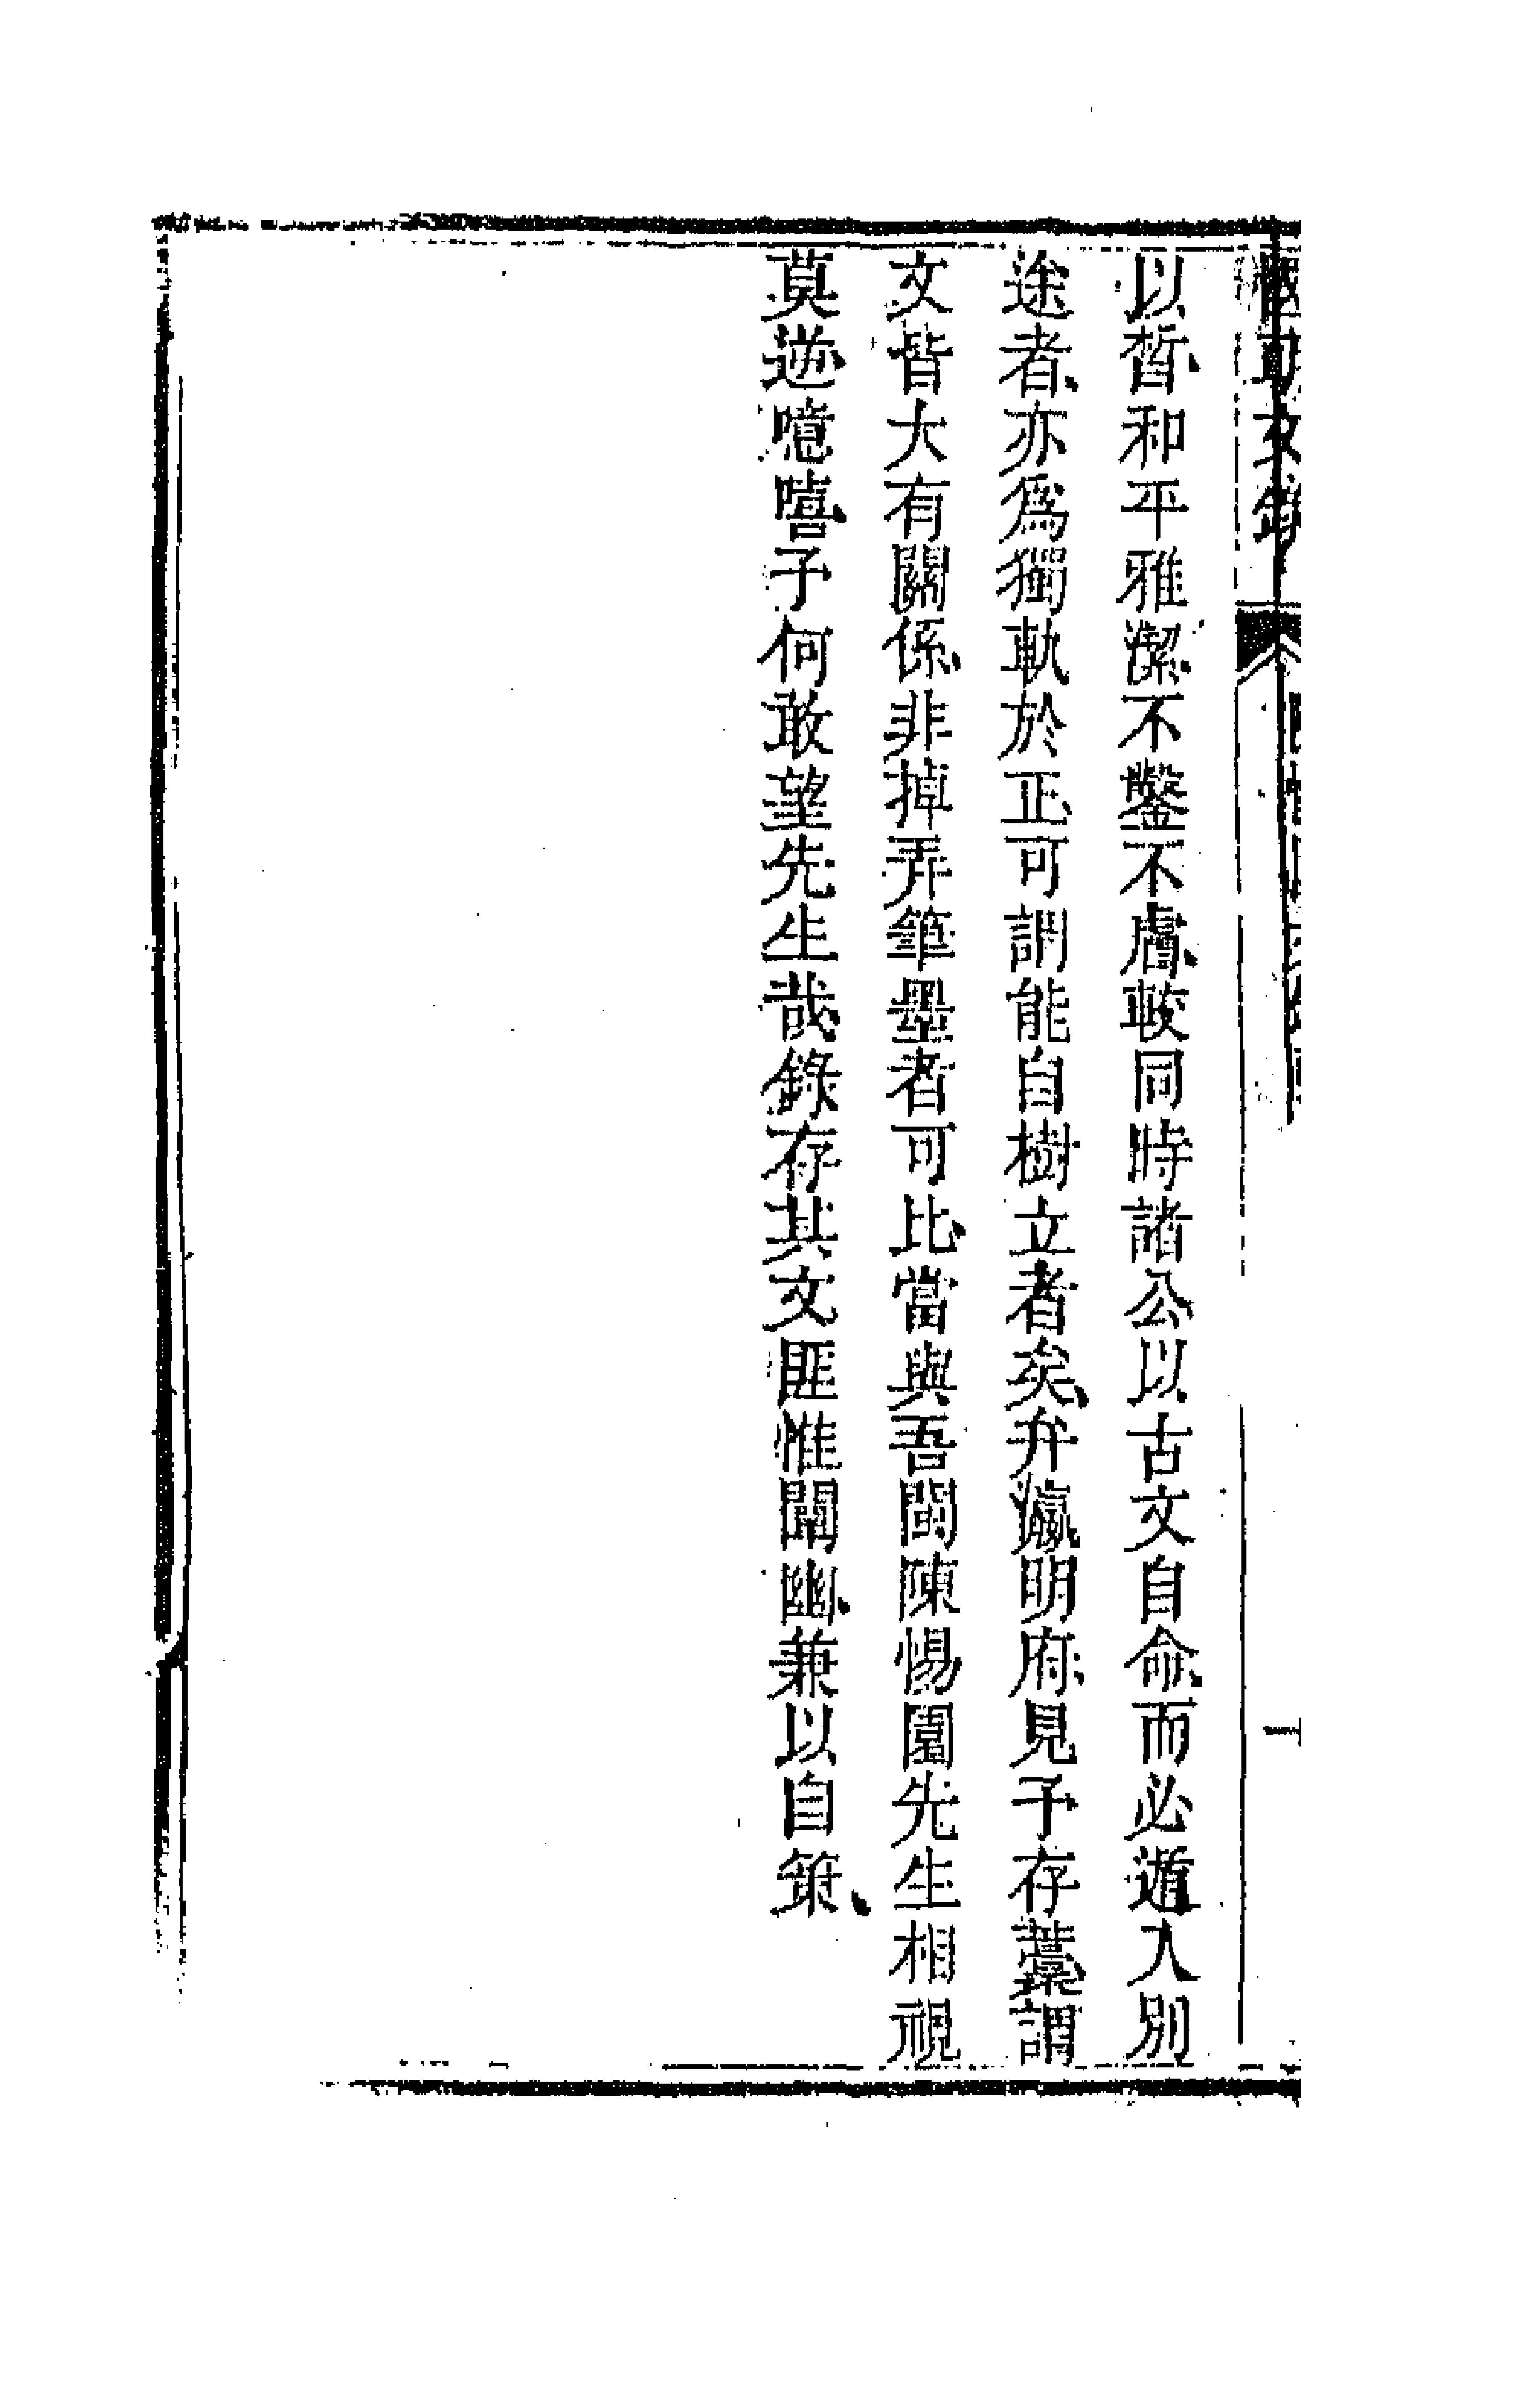 國朝文錄
一
以晳、和平雅潔、不鑿不膚、較同時諸公以古文自命、而必遁入別
途者、亦爲獨軌於正、可謂能自樹立者矣、弁瀛明府、見予存藁、謂
文皆大有關係、非掉弄筆墨者可比、當與吾閩陳惕園先生相視
莫逆、噫嘻、予何敢望先生哉、錄存其文、匪惟闡幽、兼以自策、